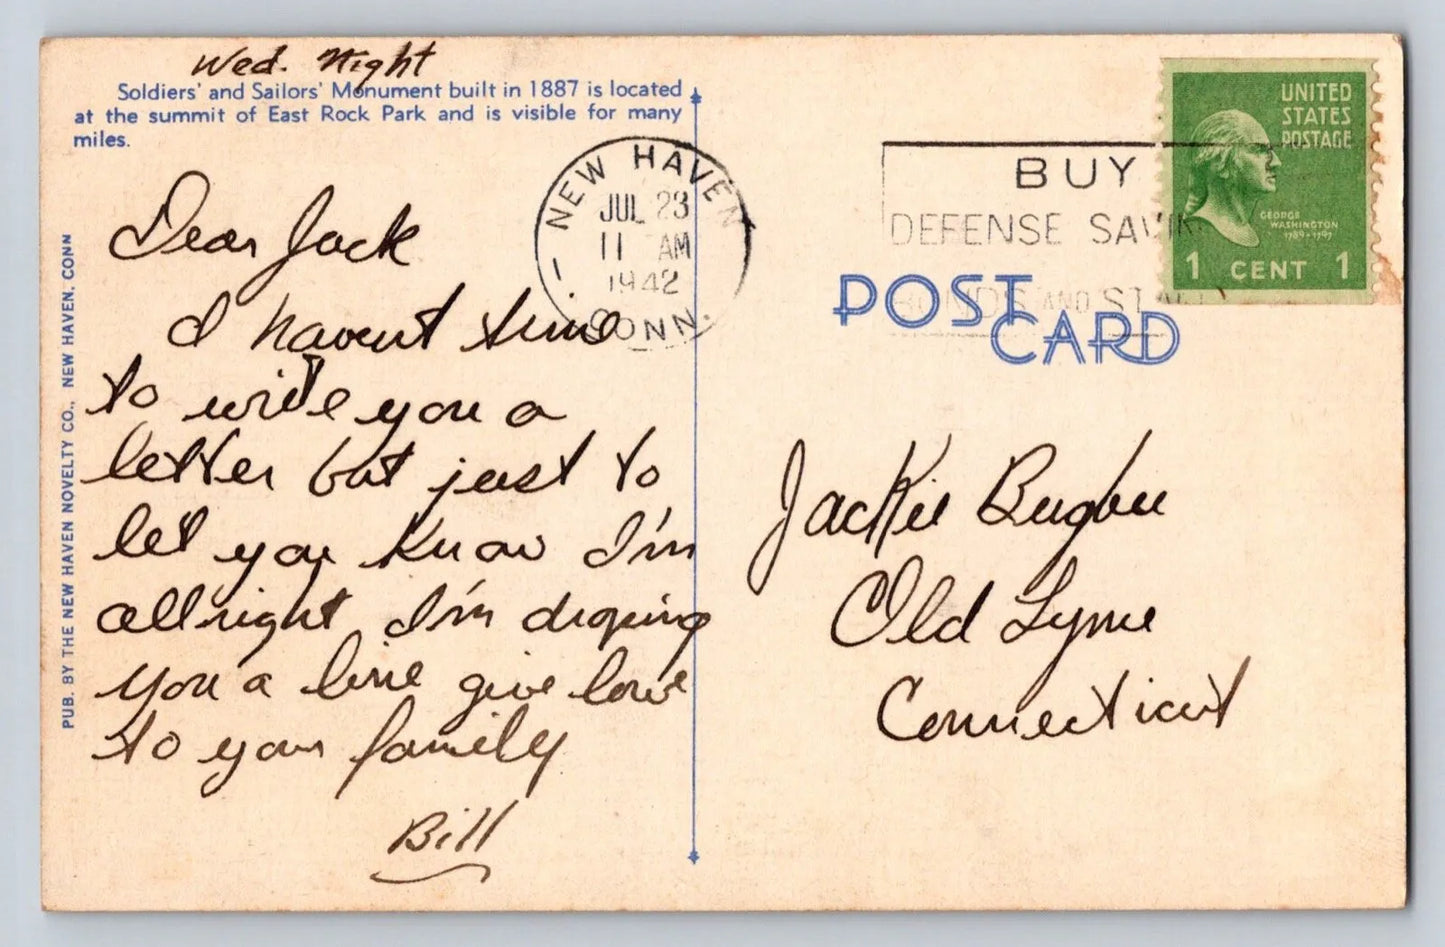 Wed. Night
Soldiers' and Sailors' Monument built in 1887 is located
at the summit of East Rock Park and is visible for many
miles.
Dear Jack
I havent time
to write you a
letter but just to
let you know I'm
allright I'm droping
you a line give love
to your family
Bill
PUB. BY THE NEW HAVEN NOVELTY CO., NEW HAVEN, CONN
NEW HAVEN
JUL 23
11 AM
1942
CONN.
1
BUY
DEFENSE SAVIN
BONDS AND STA
UNITED
STATES
POSTAGE
GEORGE
WASHINGTON
1789-1797
1 CENT 1
POST
CARD
Jackie Bugbee
Old Lyme
Connecticut